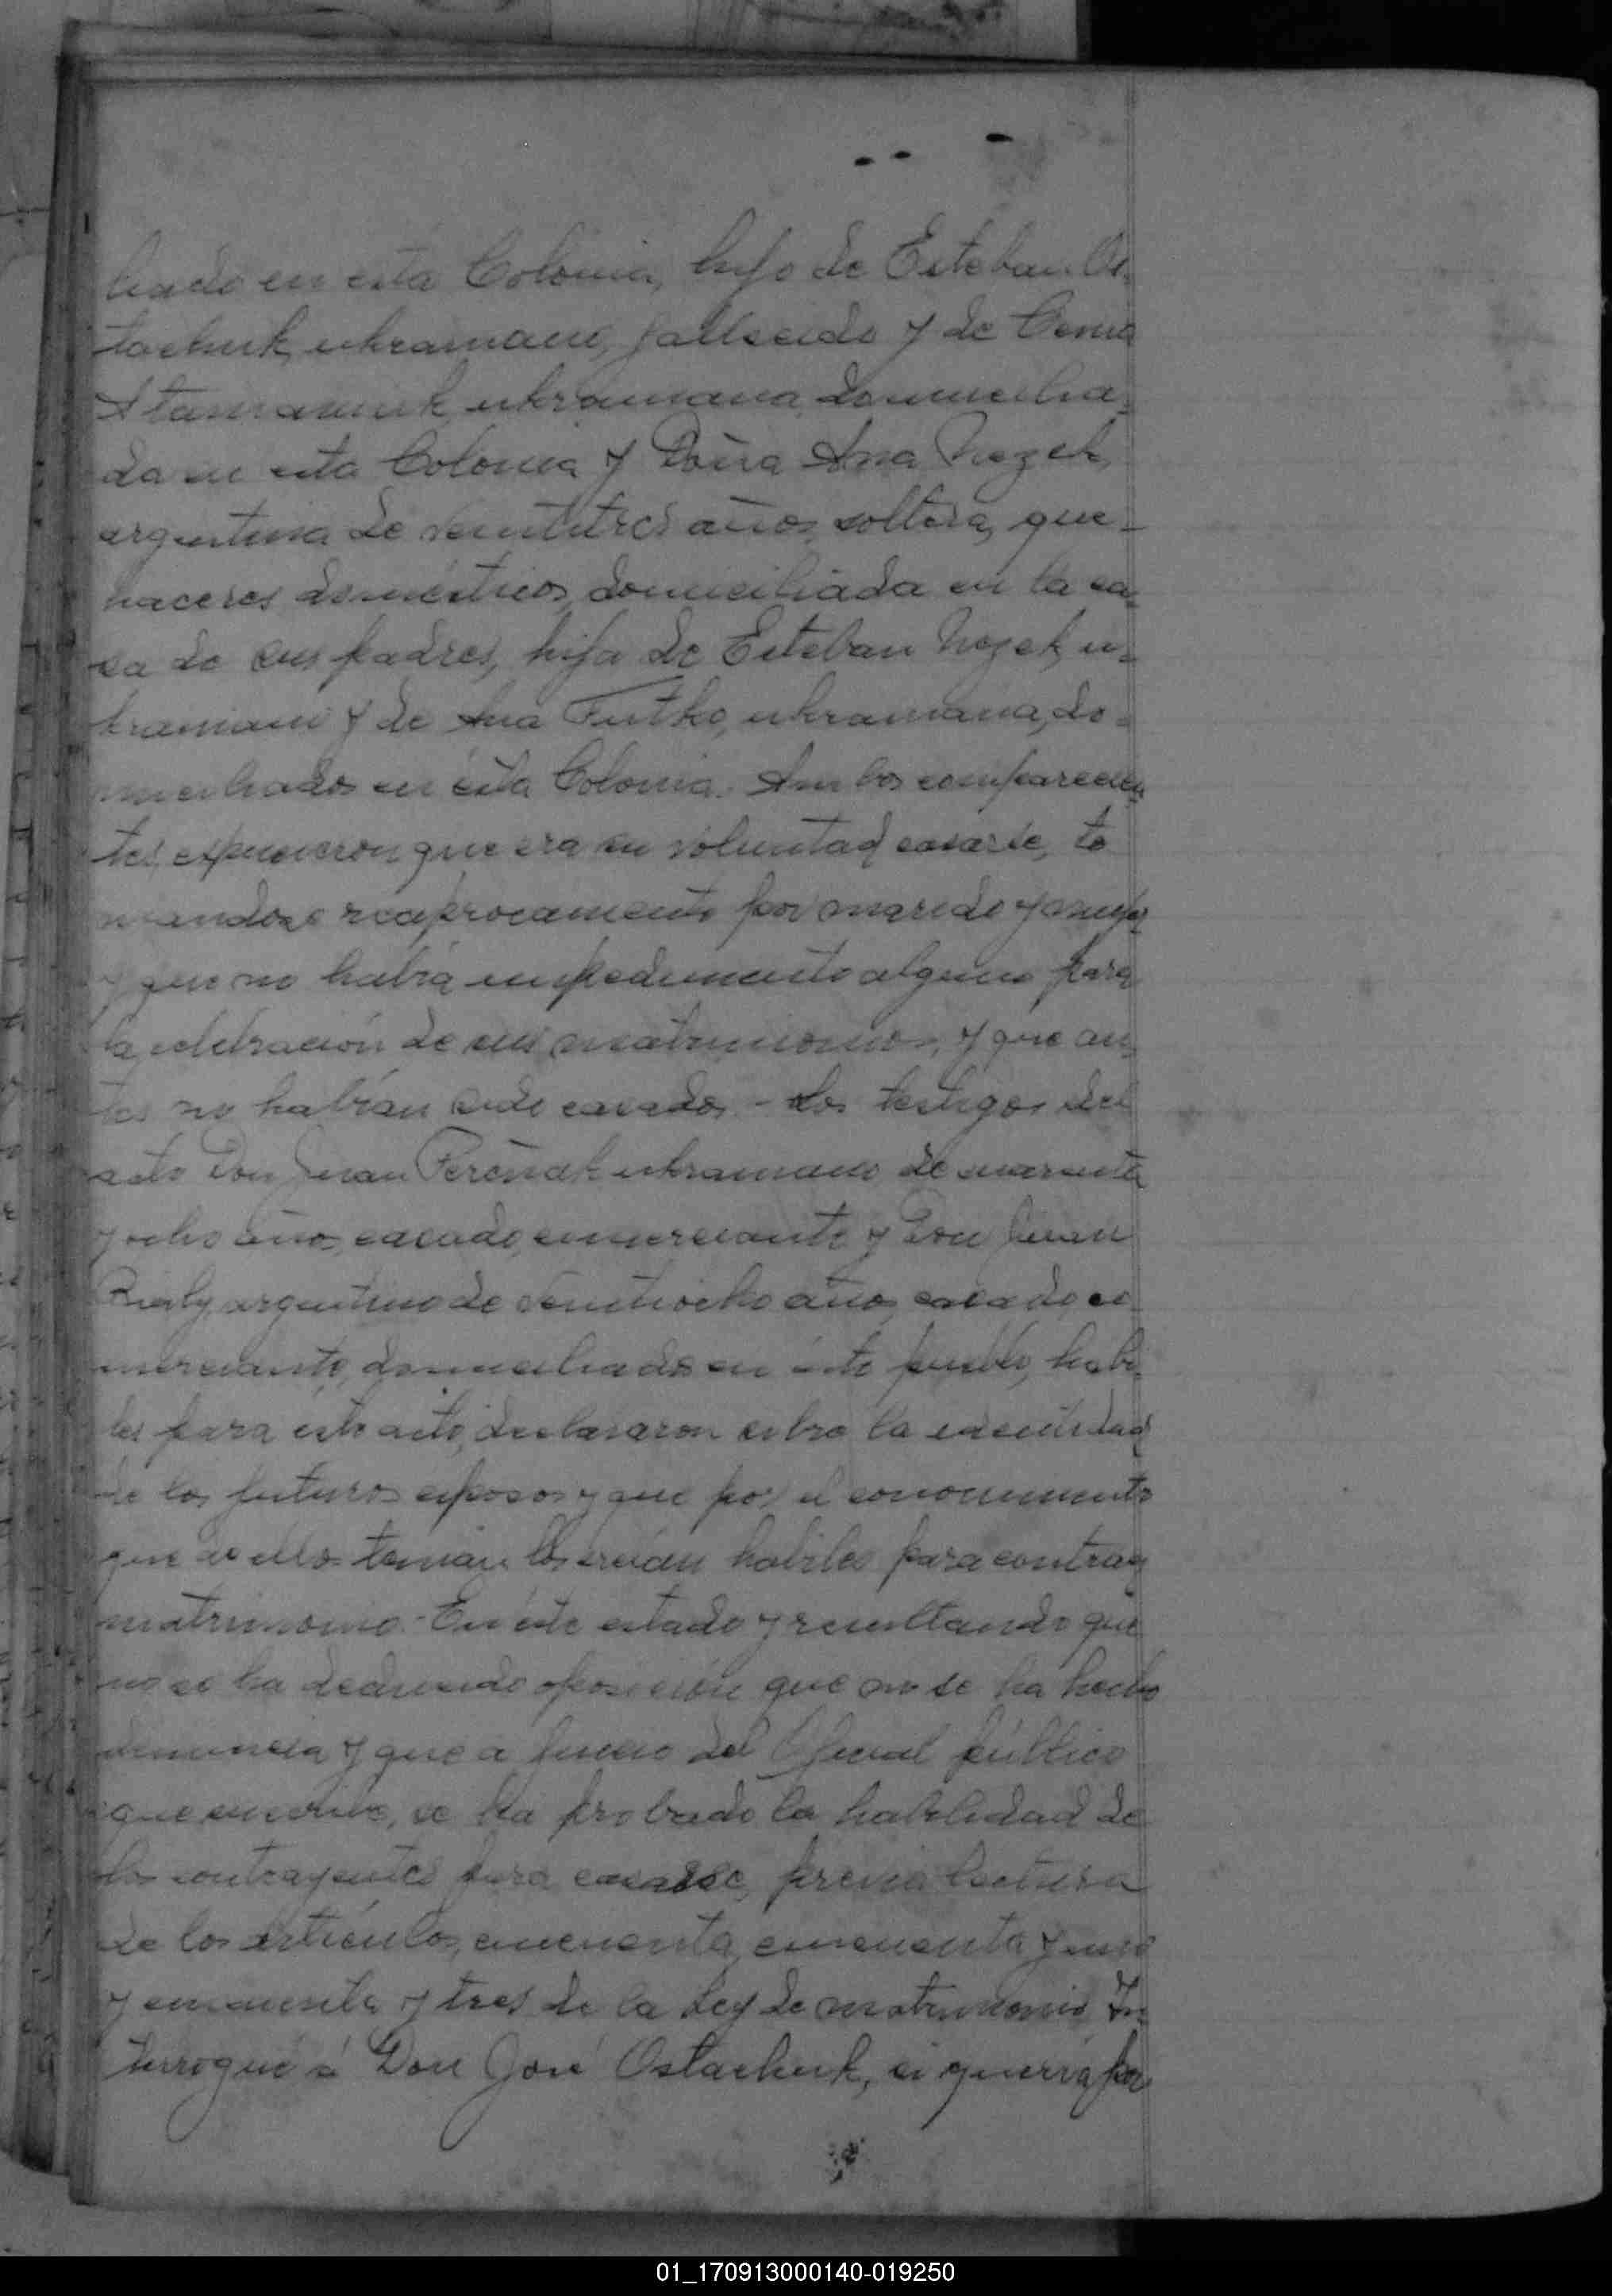 liado en esta Colonia, hijo de Esteban Os-
tachuk, ukraniano, fallecido y de
ukraniana, domicilia-
da en esta Colonia y Doña Ana
argentina de veintitres años, soltera, que-
haceres domésticos, domiciliada en la ca-
sa de sus padres, hija de Esteban u-
kraniano y de Ana ukraniana, do-
miciliados en ésta Colonia. Ambos comparecien
tes, expusieron que era su voluntad casarse, to
mandose reciprocamente por marido y mujer
y que no había impedimento alguno para
la celebración de sus matrimonio, y que an-
tes no habían sido casados - Los testigos del
acto Don Juan ukraniano de cuarenta
y ocho años, casado, comerciante y Don Juan
argentino de veintiocho años, casado, co-
merciante, domiciliados en éste pueblo, habi-
les para este acto, declararon sobre la identidad
de los futuros esposos y que por el conocimiento
que de ellos tenian los creían habiles para contraer
matrimonio - En éste estado y resultando que
no se ha deducido oposición que no se ha hecho
denuncia y que a juicio del Oficial público
que suscribe, se ha probado la habilidad de
los contrayentes para casarse, previa lectura
de los articulos, cincuenta, cincuenta y uno
y cincuenta y tres de la Ley de matrimonio, In-
terrogué á Don José Ostachuk, si quería por
01_170913000140-019250